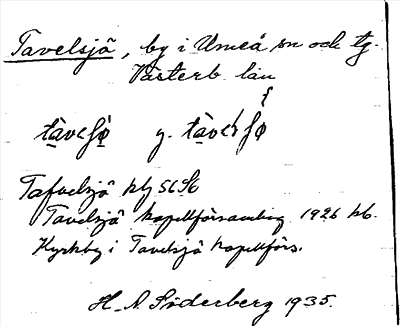 Tavelsjö, by i Umeå sn och tg.
Västerb. län
y.
Tafvelsjö
Tavelsjö kapellförsamling 1926 kb.
Kyrkby i Tavelsjö kapellförs.
H. A. Söderberg 1935.